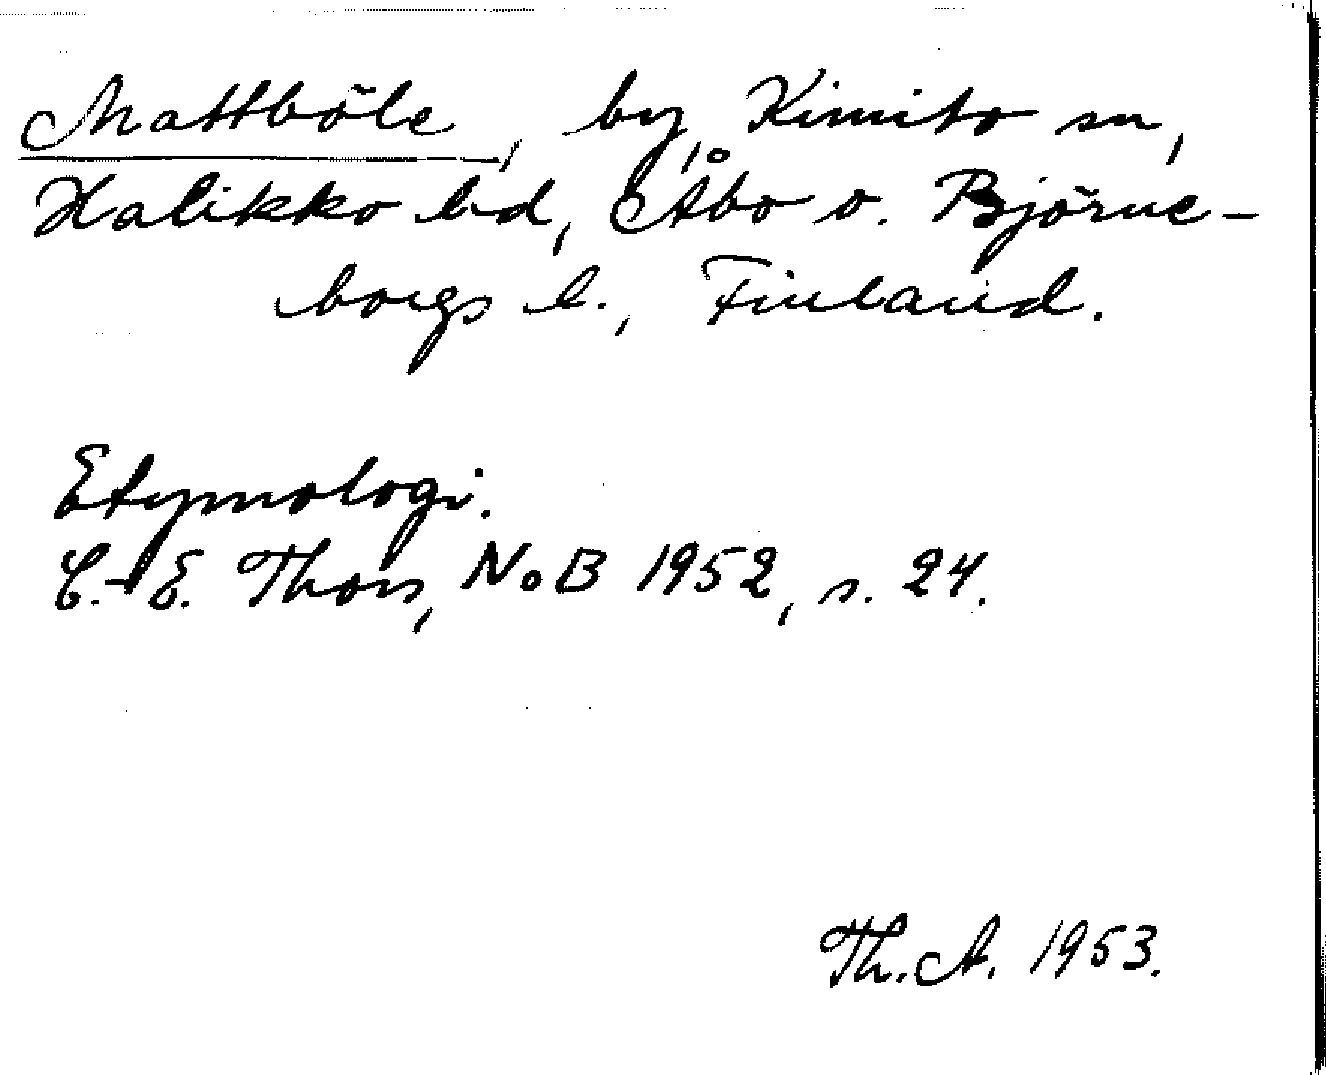 Mattböle, by, Kimito sn,
Halikko hd, Åbo o. Björne-
borgs l., Finland.
Etymologi.
C.-E. Thors, NoB 1952, s. 24.
Th. A. 1953.